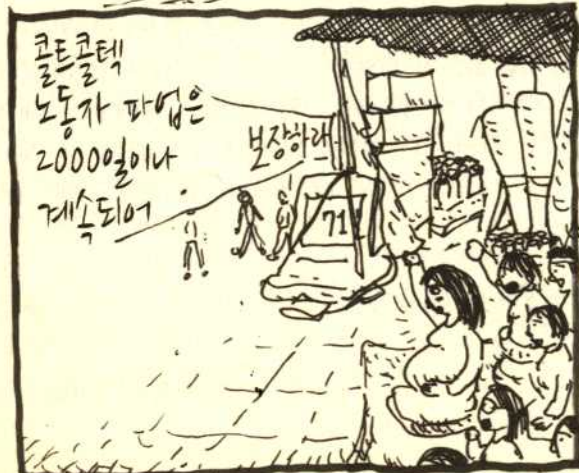 콜트콜텍
노동자 파업은
2000일이나
계속되어
보장하라
71